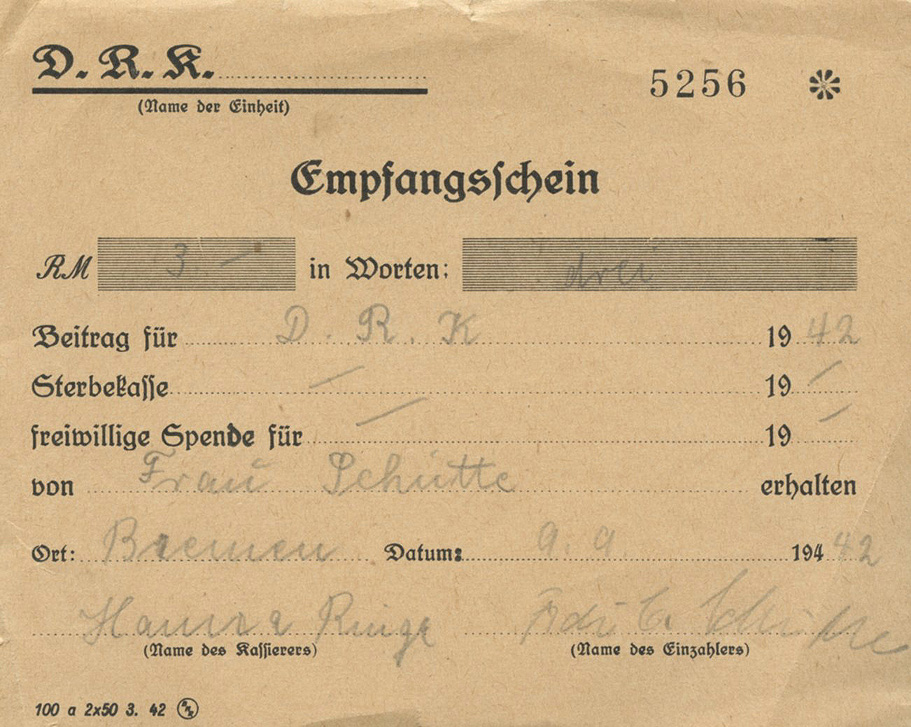 D. R. K.
5256
(Name der Einheit)
Empfangsschein
RM 3 — in Worten: drei
Beitrag für D. R. K 1942
Sterbekasse — 19 —
freiwillige Spende für — 19 —
von Frau Schütte erhalten
Ort: Bremen Datum: 9. 9 194 42
Hanna Ringe
(Name des Kassierers) (Name des Einzahlers)
100 a 2x50 3. 42